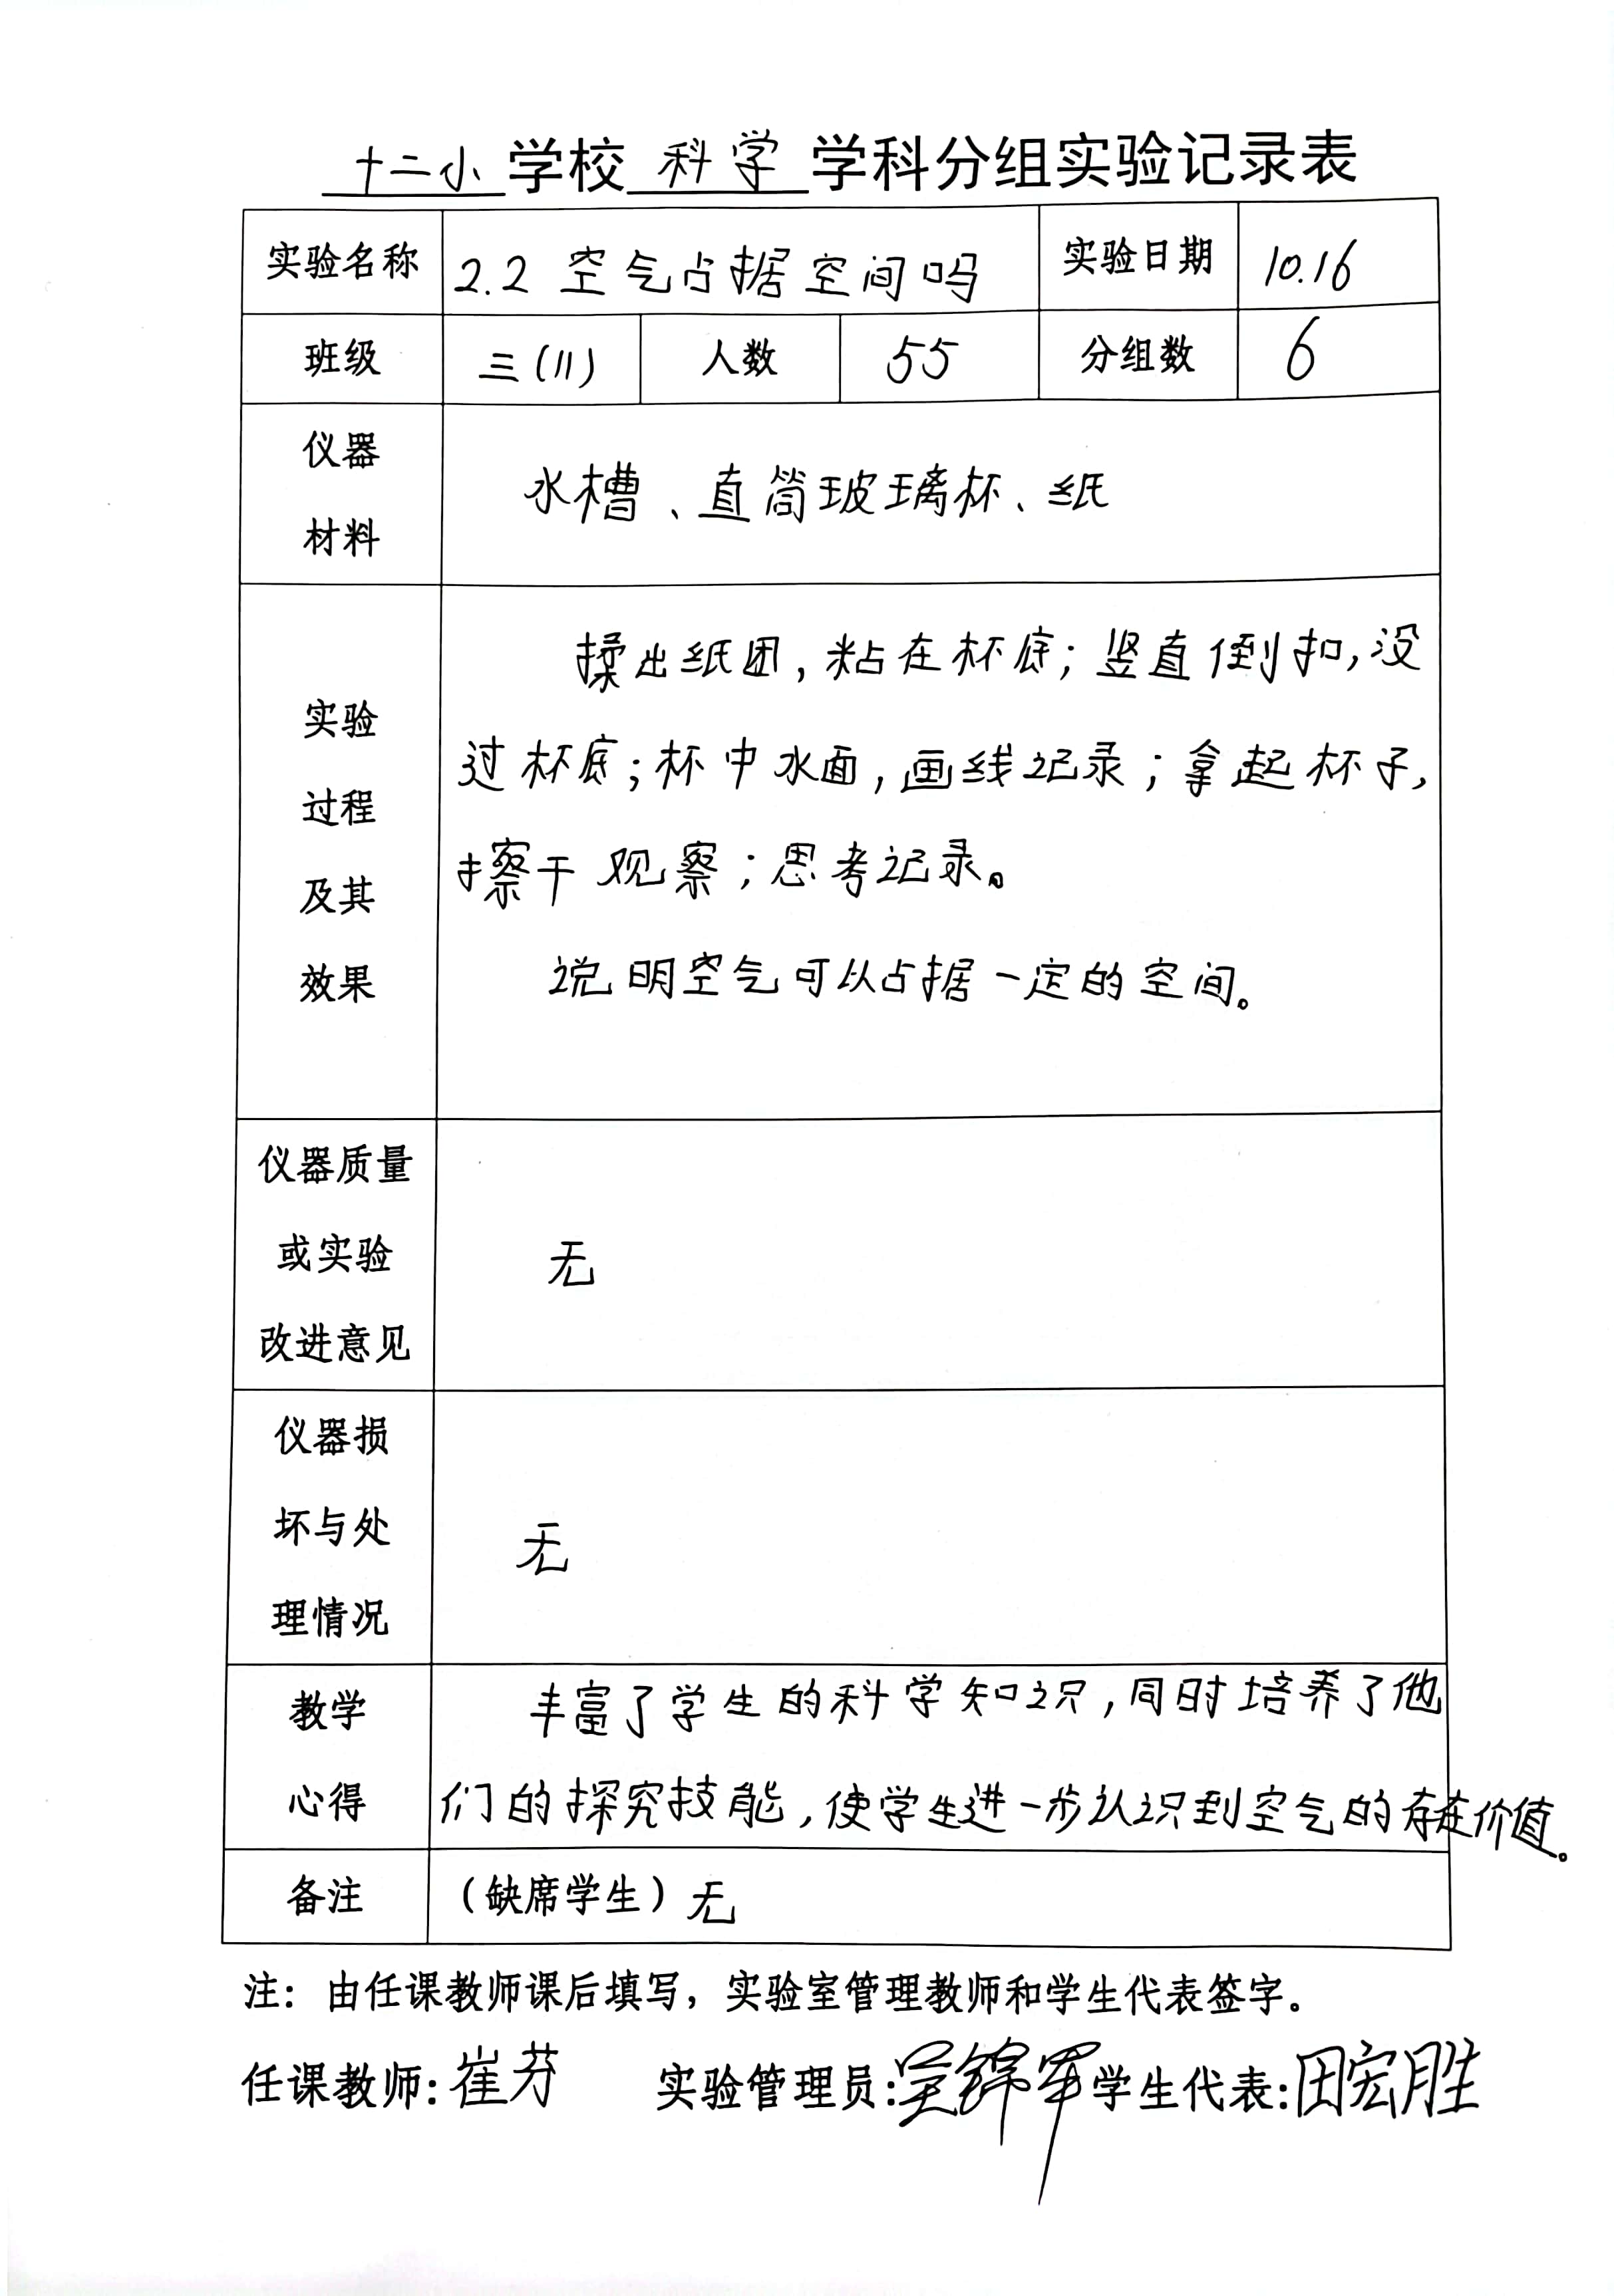 十二小学校科学学科分组实验记录表
实验名称 2.2 空气占据空间吗 实验日期 10.16
班级 三(11) 人数 55 分组数 6
仪器
材料
水槽、直筒玻璃杯、纸
实验
过程
及其
效果
揉出纸团,粘在杯底;竖直倒扣,没
过杯底;杯中水面,画线记录;拿起杯子,
擦干观察;思考记录。
说明空气可以占据一定的空间。
仪器质量
或实验
改进意见
无
仪器损
坏与处
理情况
无
教学
心得
丰富了学生的科学知识,同时培养了他
们的探究技能,使学生进一步认识到空气的存在价值。
备注 (缺席学生)无
注:由任课教师课后填写,实验室管理教师和学生代表签字。
任课教师:崔芬 实验管理员:吴锦军 学生代表:田宏胜